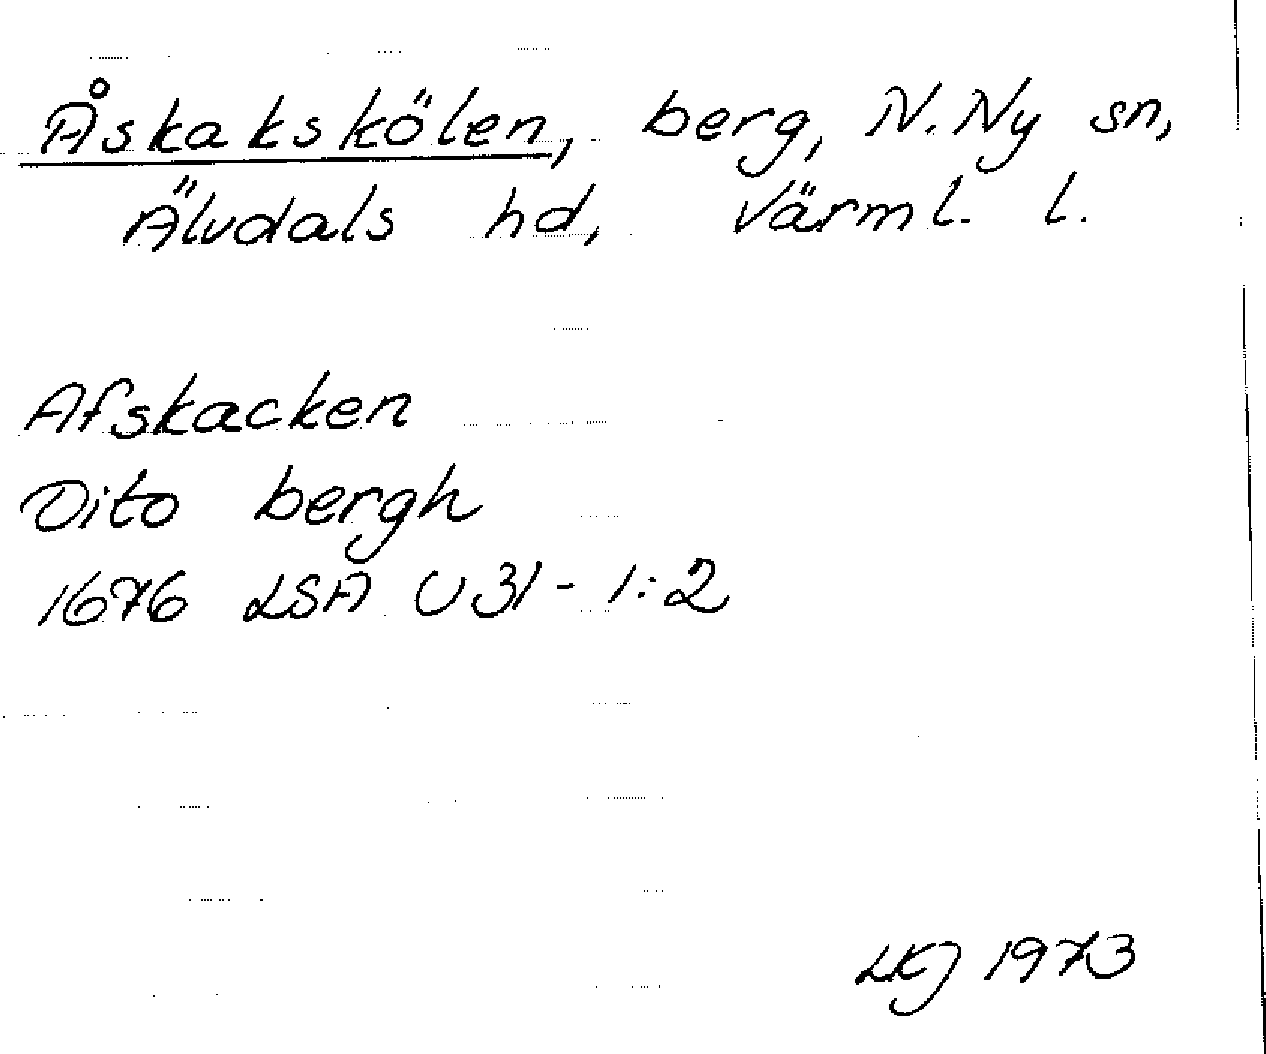 Åskakskölen, berg, N. Ny sn,
Älvdals hd, Värml. l.
Afskacken
Dito bergh
1676 LSA U31-1:2
LKJ 1973